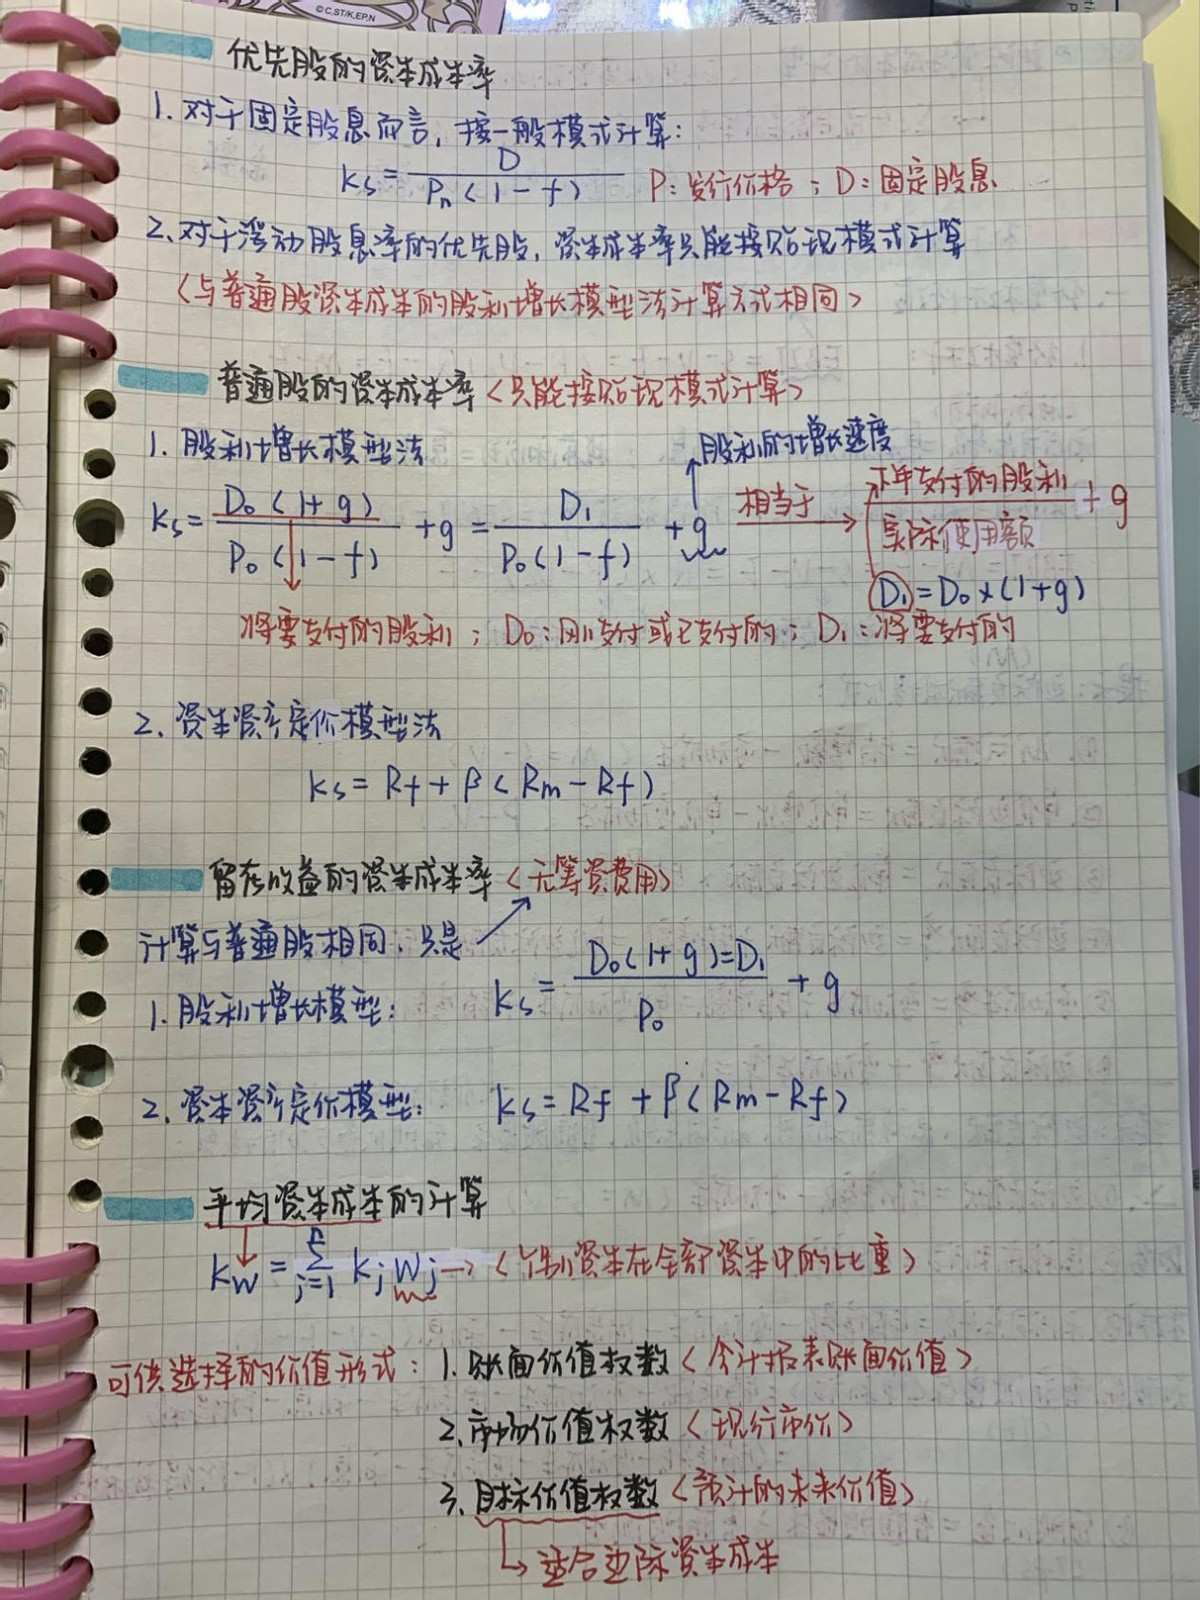 ©C,ST/K,EP,N
优先股的资本成本率
1. 对于固定股息而言，按一般模式计算：
Ks = D / Pn(1-f)  P：发行价格；D：固定股息
2、对于浮动股息率的优先股，资本成本率只能按贴现模式计算
（与普通股资本成本的股利增长模型法计算方式相同）
普通股的资本成本率（只能按贴现模式计算）
1. 股利增长模型法
股利的增长速度
Ks = D₀(1+g) / P₀(1-f) + g = D₁ / P₀(1-f) + g 相当于→ 下年支付的股利 / 实际使用额 + g
D₁ = D₀×(1+g)
将要支付的股利；D₀：刚支付或已支付的；D₁：将要支付的
2、资本资产定价模型法
Ks = Rf + β(Rm - Rf)
留存收益的资本成本率（无筹资费用）
计算与普通股相同，只是
1. 股利增长模型： Ks = D₀(1+g)=D₁ / P₀ + g
2、资本资产定价模型： Ks = Rf + β(Rm - Rf)
平均资本成本的计算
Kw = Σ j=1 Kj Wj →（个别资本在全部资本中的比重）
可供选择的价值形式：1.账面价值权数（会计报表账面价值）
2、市场价值权数（现行市价）
3、目标价值权数（预计的未来价值）
→适合边际资本成本